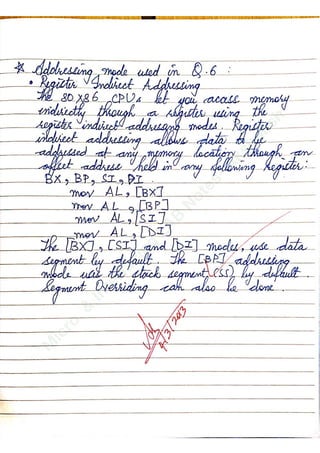 * Addressing mode used in Q.6 :
• Register Indirect Addressing
The 80X86 CPUs let you access memory
indirectly through a register using the
register indirect addressing modes. Register
indirect addressing allows data to be
addressed at any memory location through an
offset address held in any following Register:
BX, BP, SI, DI.
mov AL, [BX]
mov AL, [BP]
mov AL, [SI]
mov AL, [DI]
The [BX], [SI] and [DI] modes, use data
segment by default. The [BP] addressing
mode uses the stack segment (SS) by default.
Segment Overriding can also be done.